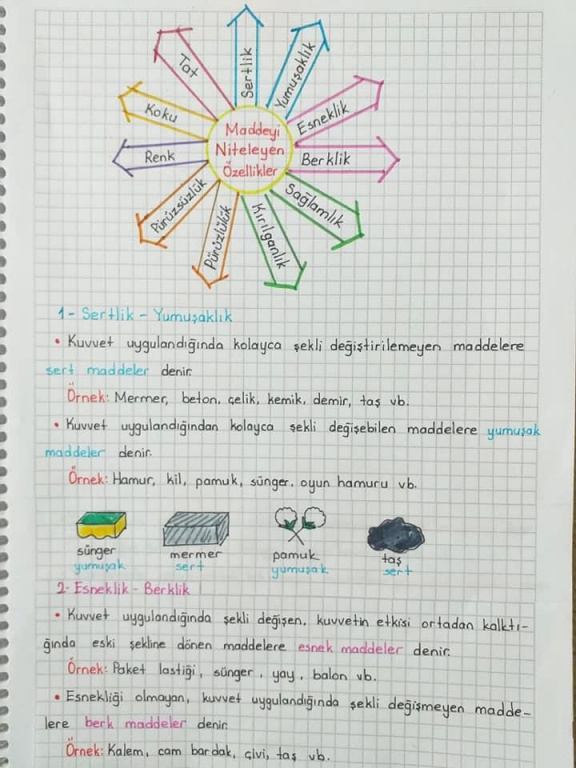 Sertlik
Yumuşaklık
Esneklik
Berklik
Sağlamlık
Kırılganlık
Pürüzlülük
Pürüzsüzlük
Renk
Koku
Tat
Maddeyi
Niteleyen
Özellikler
1- Sertlik - Yumuşaklık
• Kuvvet uygulandığında kolayca şekli değiştirilemeyen maddelere
sert maddeler denir.
Örnek: Mermer, beton, çelik, kemik, demir, taş vb.
• Kuvvet uygulandığından kolayca şekli değişebilen maddelere yumuşak
maddeler denir.
Örnek: Hamur, kil, pamuk, sünger, oyun hamuru vb.
sünger mermer pamuk taş
yumuşak sert yumuşak sert
2- Esneklik - Berklik
• Kuvvet uygulandığında şekli değişen, kuvvetin etkisi ortadan kalktı-
ğında eski şekline dönen maddelere esnek maddeler denir.
Örnek: Paket lastiği, sünger, yay, balon vb.
• Esnekliği olmayan, kuvvet uygulandığında şekli değişmeyen madde-
lere berk maddeler denir.
Örnek: Kalem, cam bardak, çivi, taş vb.